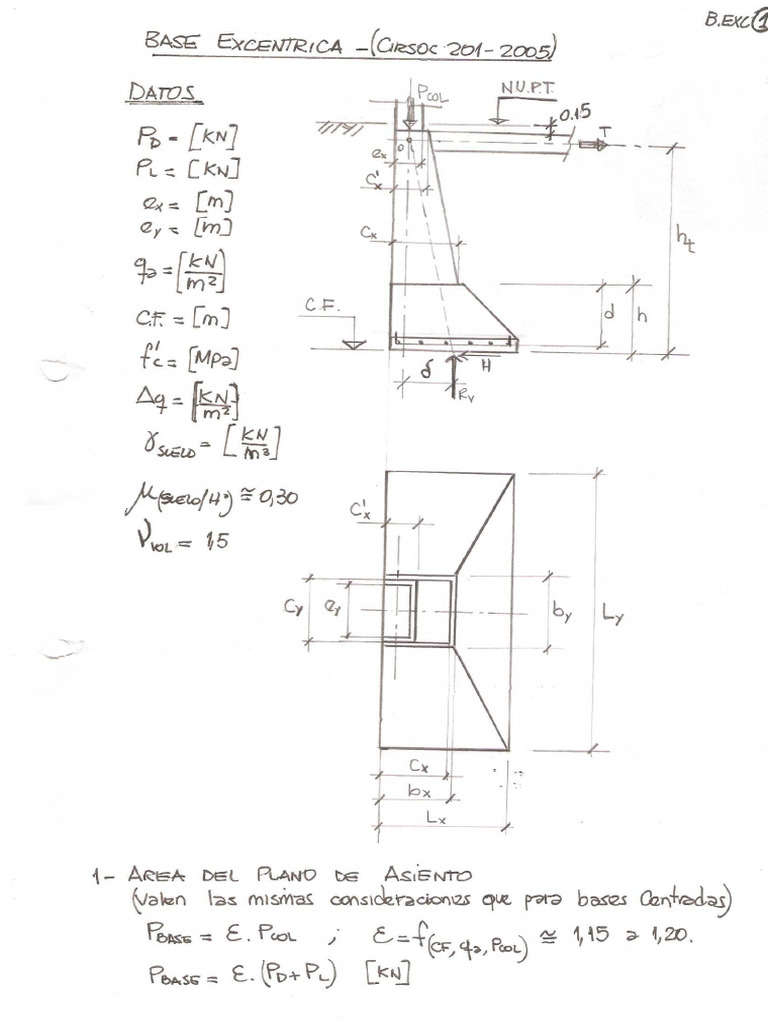 B.EXC 1
BASE EXCENTRICA - (CIRSOC 201-2005)
DATOS
PD = [KN]
PL = [KN]
ex = [m]
ey = [m]
qa = [KN/m²]
C.F. = [m]
f'c = [MPa]
Δq = [KN/m²]
γSUELO = [KN/m³]
μ(SUELO/Hº) ≅ 0,30
γVOL = 1,5
PCOL
N.U.P.T.
0.15
T
o
ex
C'x
Cx
ht
C.F.
d
h
δ
H
RV
C'x
Cy
ey
by
Ly
Cx
bx
Lx
1- AREA DEL PLANO DE ASIENTO
(Valen las mismas consideraciones que para bases Centradas)
PBASE = Ɛ. PCOL ; Ɛ = f(CF, qa, PCOL) ≅ 1,15 a 1,20.
PBASE = Ɛ. (PD + PL) [KN]